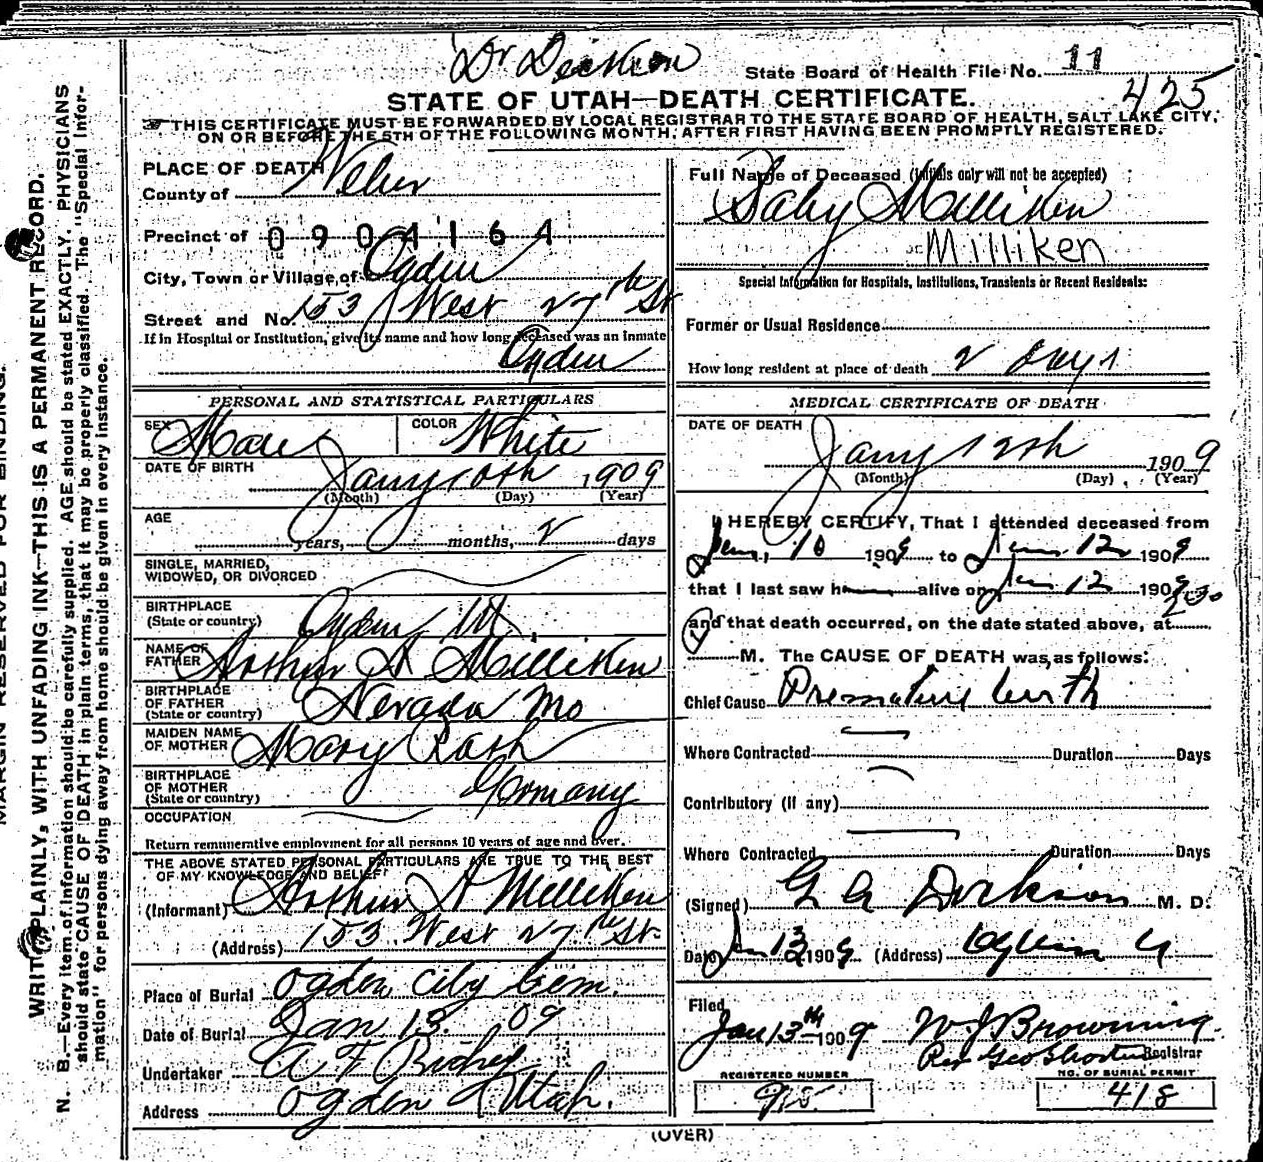 Dr Dickson
State Board of Health File No. 11
425
STATE OF UTAH—DEATH CERTIFICATE.
THIS CERTIFICATE MUST BE FORWARDED BY LOCAL REGISTRAR TO THE STATE BOARD OF HEALTH, SALT LAKE CITY,
ON OR BEFORE THE 5TH OF THE FOLLOWING MONTH, AFTER FIRST HAVING BEEN PROMPTLY REGISTERED.
MARGIN RESERVED FOR BINDING.
WRITE PLAINLY, WITH UNFADING INK—THIS IS A PERMANENT RECORD.
N. B.—Every item of information should be carefully supplied. AGE should be stated EXACTLY. PHYSICIANS
should state CAUSE OF DEATH in plain terms, that it may be properly classified. The "Special Infor-
mation" for persons dying away from home should be given in every instance.
PLACE OF DEATH
County of Weber
Precinct of 0904164
City, Town or Village of Ogden
Street and No. 153 West 27th St
If in Hospital or Institution, give its name and how long deceased was an inmate
Ogden
PERSONAL AND STATISTICAL PARTICULARS
SEX Male COLOR White
DATE OF BIRTH Jany 10th 1909
(Month) (Day) (Year)
AGE
years, months, 2 days
SINGLE, MARRIED,
WIDOWED, OR DIVORCED
BIRTHPLACE
(State or country) Ogden Ut.
NAME OF
FATHER Arthur A Milliken
BIRTHPLACE
OF FATHER
(State or country) Nevada Mo
MAIDEN NAME
OF MOTHER Mary Rash
BIRTHPLACE
OF MOTHER
(State or country) Germany
OCCUPATION
Return remunerative employment for all persons 10 years of age and over.
THE ABOVE STATED PERSONAL PARTICULARS ARE TRUE TO THE BEST
OF MY KNOWLEDGE AND BELIEF
(Informant) Arthur A Milliken
(Address) 153 West 27th St.
Place of Burial Ogden City Cem.
Date of Burial Jan 13. 09
Undertaker A F
Address Ogden Utah.
Full Name of Deceased (Initials only will not be accepted)
Baby Milliken
Milliken
Special Information for Hospitals, Institutions, Transients or Recent Residents:
Former or Usual Residence
How long resident at place of death 2 Days
MEDICAL CERTIFICATE OF DEATH
DATE OF DEATH
Jany 12th 1909
(Month) (Day) (Year)
I HEREBY CERTIFY, That I attended deceased from
Jan, 10 1909 to Jan 12 1909
that I last saw h alive on Jan 12 1909
and that death occurred, on the date stated above, at 2:30
M. The CAUSE OF DEATH was as follows:
Chief Cause Premature birth
Where Contracted Duration Days
Contributory (if any)
Where Contracted Duration Days
(Signed) G A Dickson M. D.
Date Jan 13 1909 (Address) Ogden U
Filed
Jan 13th 1909 W. J Browning
Registrar
REGISTERED NUMBER
NO. OF BURIAL PERMIT
418
(OVER)